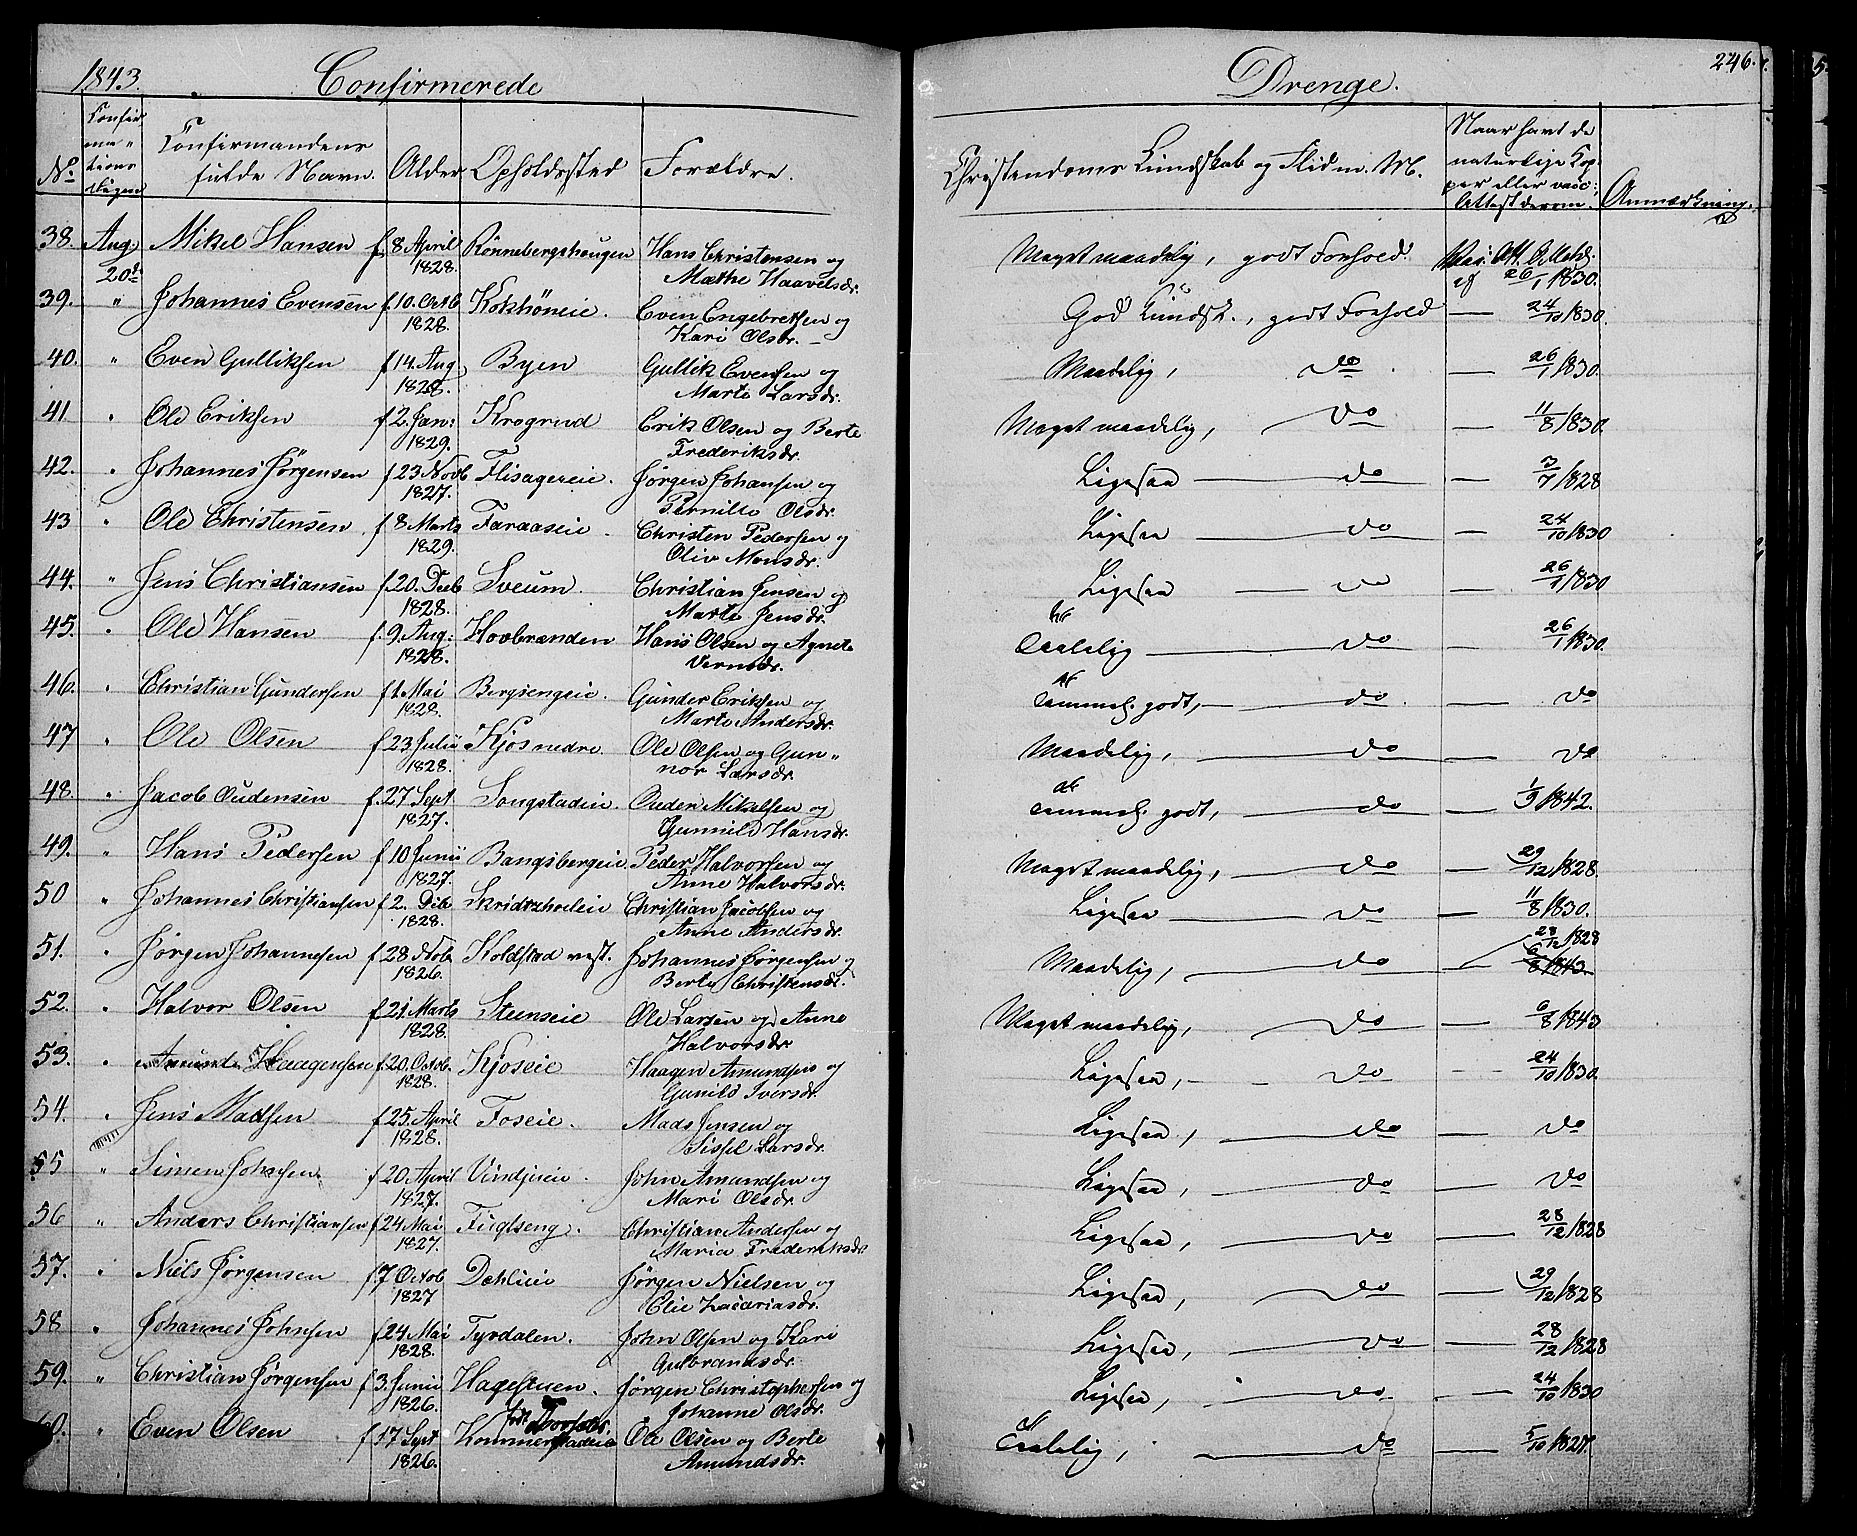 1843. Confirmerede Drenge. 246.
No Confirmationsdagen Confirmandens fulde Navn. Alder Opholdssted Forældre. Christendoms Kundskab og Flid m. M. Naar havt de naturlige Kopper eller vacc: Attest derom. Anmærkning.
38. Aug: 20de Mikel Hansen f. 8 April 1828. Rönnebergshaugen Hans Christensen og Mathe Haavelsdr. Meget maadelig, godt Forhold 26/1 1830.
39. " Johannes Evensen f. 10. Octb 1828. Even Engebretsen og Kari Olsdr. God Kundsk., godt Forhold — 24/10 1830.
40. " Even Gulliksen f 14. Aug 1828. Byen Gullik Evensen og Marte Larsdr. Maadelig, do — 26/1 1830.
41 " Ole Eriksen f 2. Jan: 1829. Krogrud Erik Olsen og Berte Frederiksdr. Meget maadelig, do — 11/8 1830.
42. " Johannes Jörgensen f 23 Novb 1827. Flisagereie. Jörgen Johansen og Pernille Olsdr. Ligesaa — do — 3/7 1828
43 " Ole Christensen f 8 Marts 1829. Faraaseie. Christen Pedersen og Olive Monsdr. Ligesaa — do — 24/10 1830
44. " Jens Christiansen f. 20. Decb 1828. Sveum. Christian Jensen og Marte Jensdr. Ligesaa — do — 26/1 1830
45. " Ole Hansen f. 9. Aug: 1828. Hovbrænden Hans Olsen og Agnete Taalelig — do — 26/1 1830.
46. " Christian Gundersen f 1. Mai 1828. Bergsengeie. Gunder Eriksen og Marte Andersdr. Temmel. godt, — do — do
47 " Ole Olsen f 23. Julii 1828. Kjos nedre. Ole Olsen og Gunnor Larsdr. Maadelig, — do — do
48. " Jacob Oudensen f. 27 Sept 1827. Songstadeie. Ouden Mikelsen og Gunnild Hansdr. Temmel. godt, — do — 1/9 1842.
49. " Hans Pedersen f 10 Junii 1827. Bangsbergeie. Peder Halvorsen og Anne Halvorsdr. Meget maadelig, — do — 29/12 1828.
50 " Johannes Christiansen f 2. Deb 1828. Christian Jacobsen og Anne Andersdr. Ligesaa — do — 11/8 1830.
51. " Jörgen Johannesen f 28 Nob. 1826. Koldstad vest. Johannes Jörgensen og Berte Christensdr. Maadelig, — do — 28/12 1828 6/8 1843.
52. " Halvor Olsen f. 21. Marts 1828. Steenseie Ole Larsen og Anne Halvorsdr. Meget maadelig, — do — 6/8 1843
53. " Amund Haagensen f 20. Octob. 1828. Kjoseie Haagen Amundsen og Gunild Iversdr. Ligesaa, — do — 24/10 1830.
54. " Jens Madsen f 25. April 1828. Foseie. Mads Jensen og Sissel Larsdr. Ligesaa, — do — do
55 " Simen Johnsen f 20 April 1827. Vindjueie. John Amundsen og Mari Olsdr. Ligesaa, — do — do
56 " Anders Christiansen f 24. Mai 1827. Fuglseng. Christian Andersen og Maria Frederiksdr. Ligesaa, — do — 28/12 1828
57. " Niels Jörgensen f. 7 Octob 1827 Dehlieie Jörgen Nielsen og Elie Zacariasdr. Ligesaa, — do — 29/12 1828
58 " Johannes Johnsen f 24 Mai 1828. Tyrdalen. John Olsen og Kari Gulbrandsdr. Ligesaa, — do — 28/12 1828
59. " Christian Jörgensen f 3. Junii 1826. Hagestuen. Jörgen Christophersen og Johanne Olsdr. Ligesaa, — do — 24/10 1830
60. " Even Olsen f. 17 Sept 1826. Kommerstadeie Ole Olsen og Berte Amundsdr. Taalelig, — do — 5/10 1827.